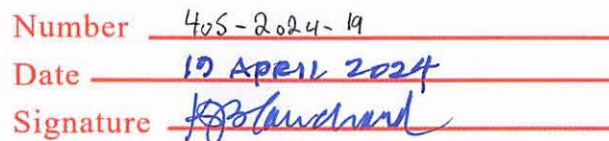 Number 405-2024-19
Date 19 APRIL 2024
Signature